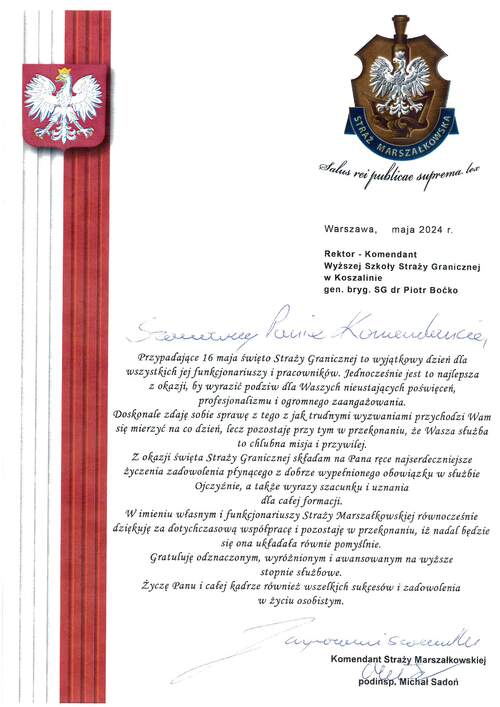 STRAŻ MARSZAŁKOWSKA
Salus rei publicae suprema lex
Warszawa, maja 2024 r.
Rektor - Komendant
Wyższej Szkoły Straży Granicznej
w Koszalinie
gen. bryg. SG dr Piotr Boćko
Szanowny Panie Komendancie,
Przypadające 16 maja święto Straży Granicznej to wyjątkowy dzień dla
wszystkich jej funkcjonariuszy i pracowników. Jednocześnie jest to najlepsza
z okazji, by wyrazić podziw dla Waszych nieustających poświęceń,
profesjonalizmu i ogromnego zaangażowania.
Doskonale zdaję sobie sprawę z tego z jak trudnymi wyzwaniami przychodzi Wam
się mierzyć na co dzień, lecz pozostaję przy tym w przekonaniu, że Wasza służba
to chlubna misja i przywilej.
Z okazji święta Straży Granicznej składam na Pana ręce najserdeczniejsze
życzenia zadowolenia płynącego z dobrze wypełnionego obowiązku w służbie
Ojczyźnie, a także wyrazy szacunku i uznania
dla całej formacji.
W imieniu własnym i funkcjonariuszy Straży Marszałkowskiej równocześnie
dziękuję za dotychczasową współpracę i pozostaję w przekonaniu, iż nadal będzie
się ona układała równie pomyślnie.
Gratuluję odznaczonym, wyróżnionym i awansowanym na wyższe
stopnie służbowe.
Życzę Panu i całej kadrze również wszelkich sukcesów i zadowolenia
w życiu osobistym.
Z wyrazami szacunku
Komendant Straży Marszałkowskiej
podinsp. Michał Sadoń